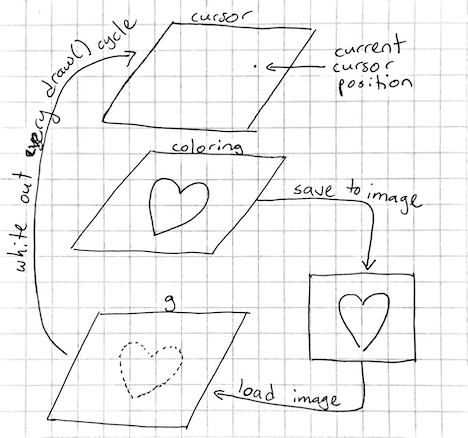 cursor
current
cursor
position
white out every draw() cycle
coloring
save to image
g
load image